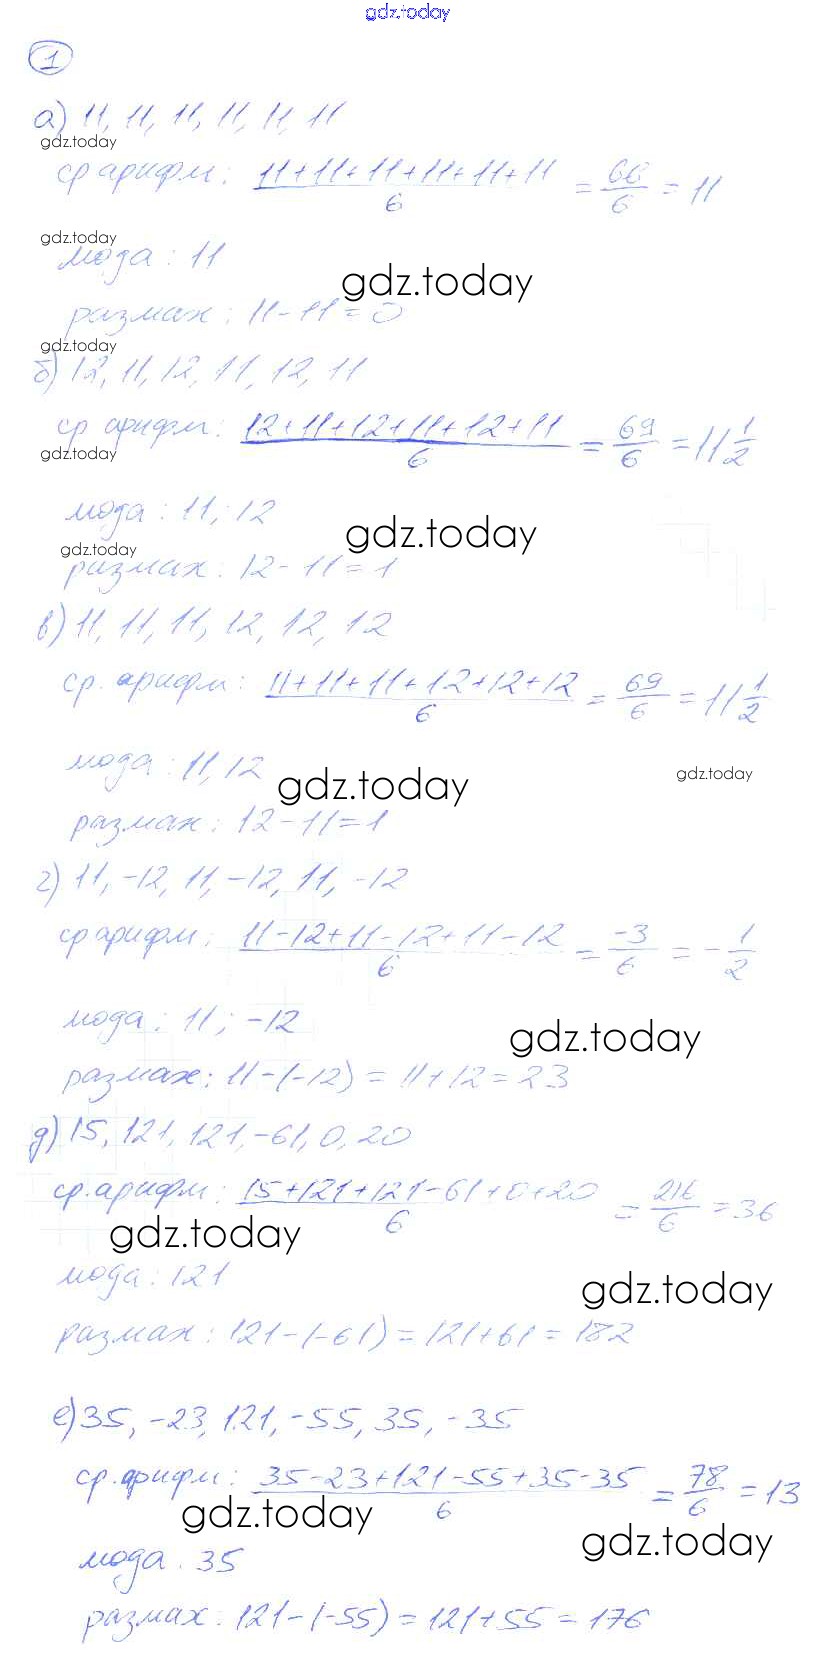 gdz.today
1
а) 11, 11, 11, 11, 11, 11
gdz.today
ср арифм: (11+11+11+11+11+11)/6 = 66/6 = 11
gdz.today
мода: 11
gdz.today
размах: 11-11=0
gdz.today
б) 12, 11, 12, 11, 12, 11
ср арифм: (12+11+12+11+12+11)/6 = 69/6 = 11 1/2
gdz.today
мода: 11; 12
gdz.today
gdz.today
размах: 12-11=1
в) 11, 11, 11, 12, 12, 12
ср. арифм: (11+11+11+12+12+12)/6 = 69/6 = 11 1/2
мода: 11, 12
gdz.today
gdz.today
размах: 12-11=1
г) 11, -12, 11, -12, 11, -12
ср арифм: (11-12+11-12+11-12)/6 = -3/6 = -1/2
мода: 11; -12
gdz.today
размах: 11-(-12) = 11+12 = 23
д) 15, 121, 121, -61, 0, 20
ср. арифм: (15+121+121-61+0+20)/6 = 216/6 = 36
gdz.today
мода: 121
gdz.today
размах: 121-(-61) = 121+61 = 182
е) 35, -23, 121, -55, 35, -35
ср. арифм: (35-23+121-55+35-35)/6 = 78/6 = 13
gdz.today
gdz.today
мода. 35
размах: 121-(-55) = 121+55 = 176